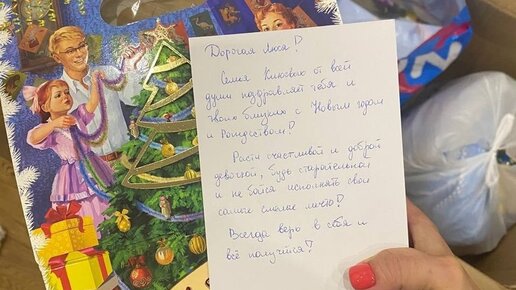 Дорогая Люся!
Семья Клюевых от всей
души поздравляет тебя и
твоих близких с Новым годом
и Рождеством!
Расти счастливой и доброй
девочкой, будь старательной
и не бойся исполнять свои
самые смелые мечты!
Всегда верь в себя и
всё получится!